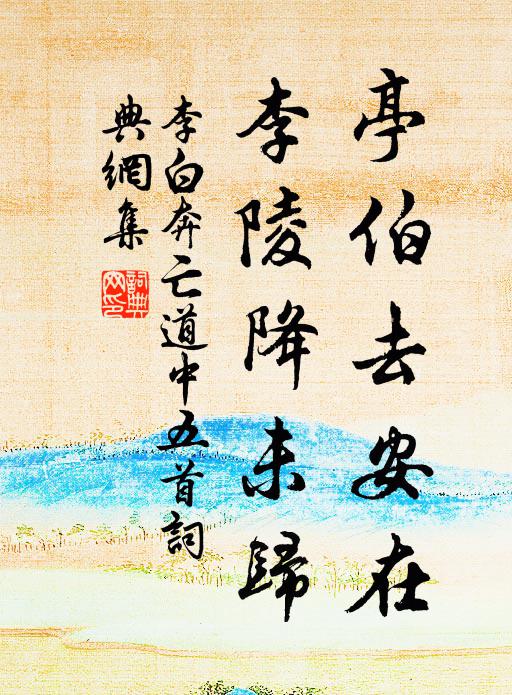 亭伯去安在
李陵降未歸
李白奔亡道中五首詞
典網集
詞典
网印